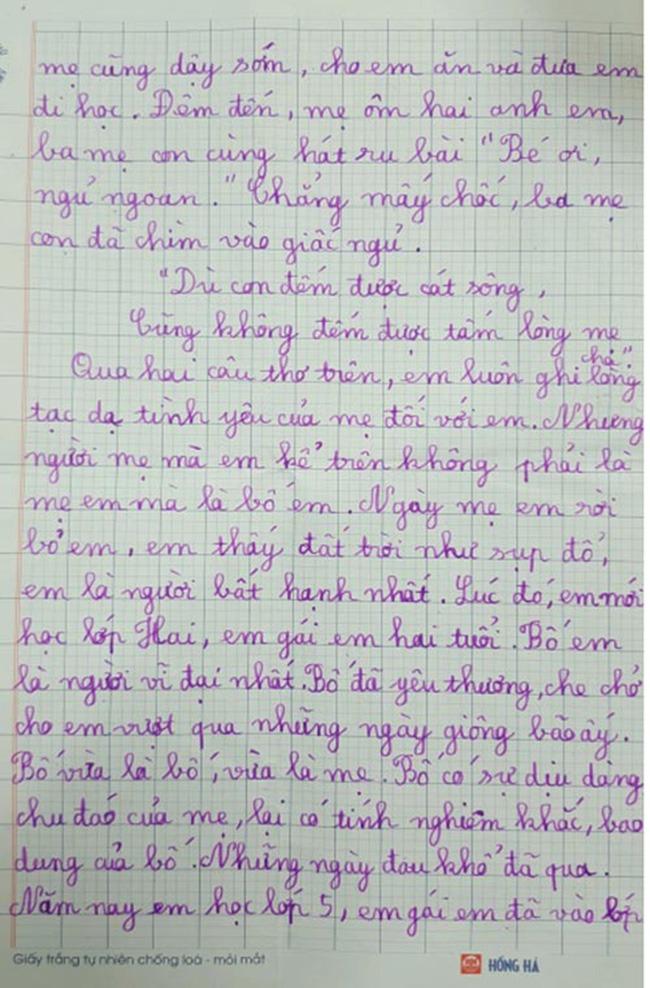 mẹ cũng dậy sớm, cho em ăn và đưa em
đi học. Đêm đến, mẹ ôm hai anh em,
ba mẹ con cùng hát ru bài "Bé ơi,
ngủ ngoan." Chẳng mấy chốc, ba mẹ
con đã chìm vào giấc ngủ.
"Dù con đếm được cát sông,
Cũng không đếm được tấm lòng mẹ
cha".
Qua hai câu thơ trên, em luôn ghi lòng
tạc dạ tình yêu của mẹ đối với em. Nhưng
người mẹ mà em kể trên không phải là
mẹ em mà là bố em. Ngày mẹ em rời
bỏ em, em thấy đất trời như sụp đổ,
em là người bất hạnh nhất. Lúc đó, em mới
học lớp Hai, em gái em hai tuổi. Bố em
là người vĩ đại nhất. Bố đã yêu thương, che chở
cho em vượt qua những ngày giông bão ấy.
Bố vừa là bố, vừa là mẹ. Bố có sự dịu dàng
chu đáo của mẹ, lại có tính nghiêm khắc, bao
dung của bố. Những ngày đau khổ đã qua.
Năm nay em học lớp 5, em gái em đã vào lớp
Giấy trắng tự nhiên chống loá - mỏi mắt
HỒNG HÀ